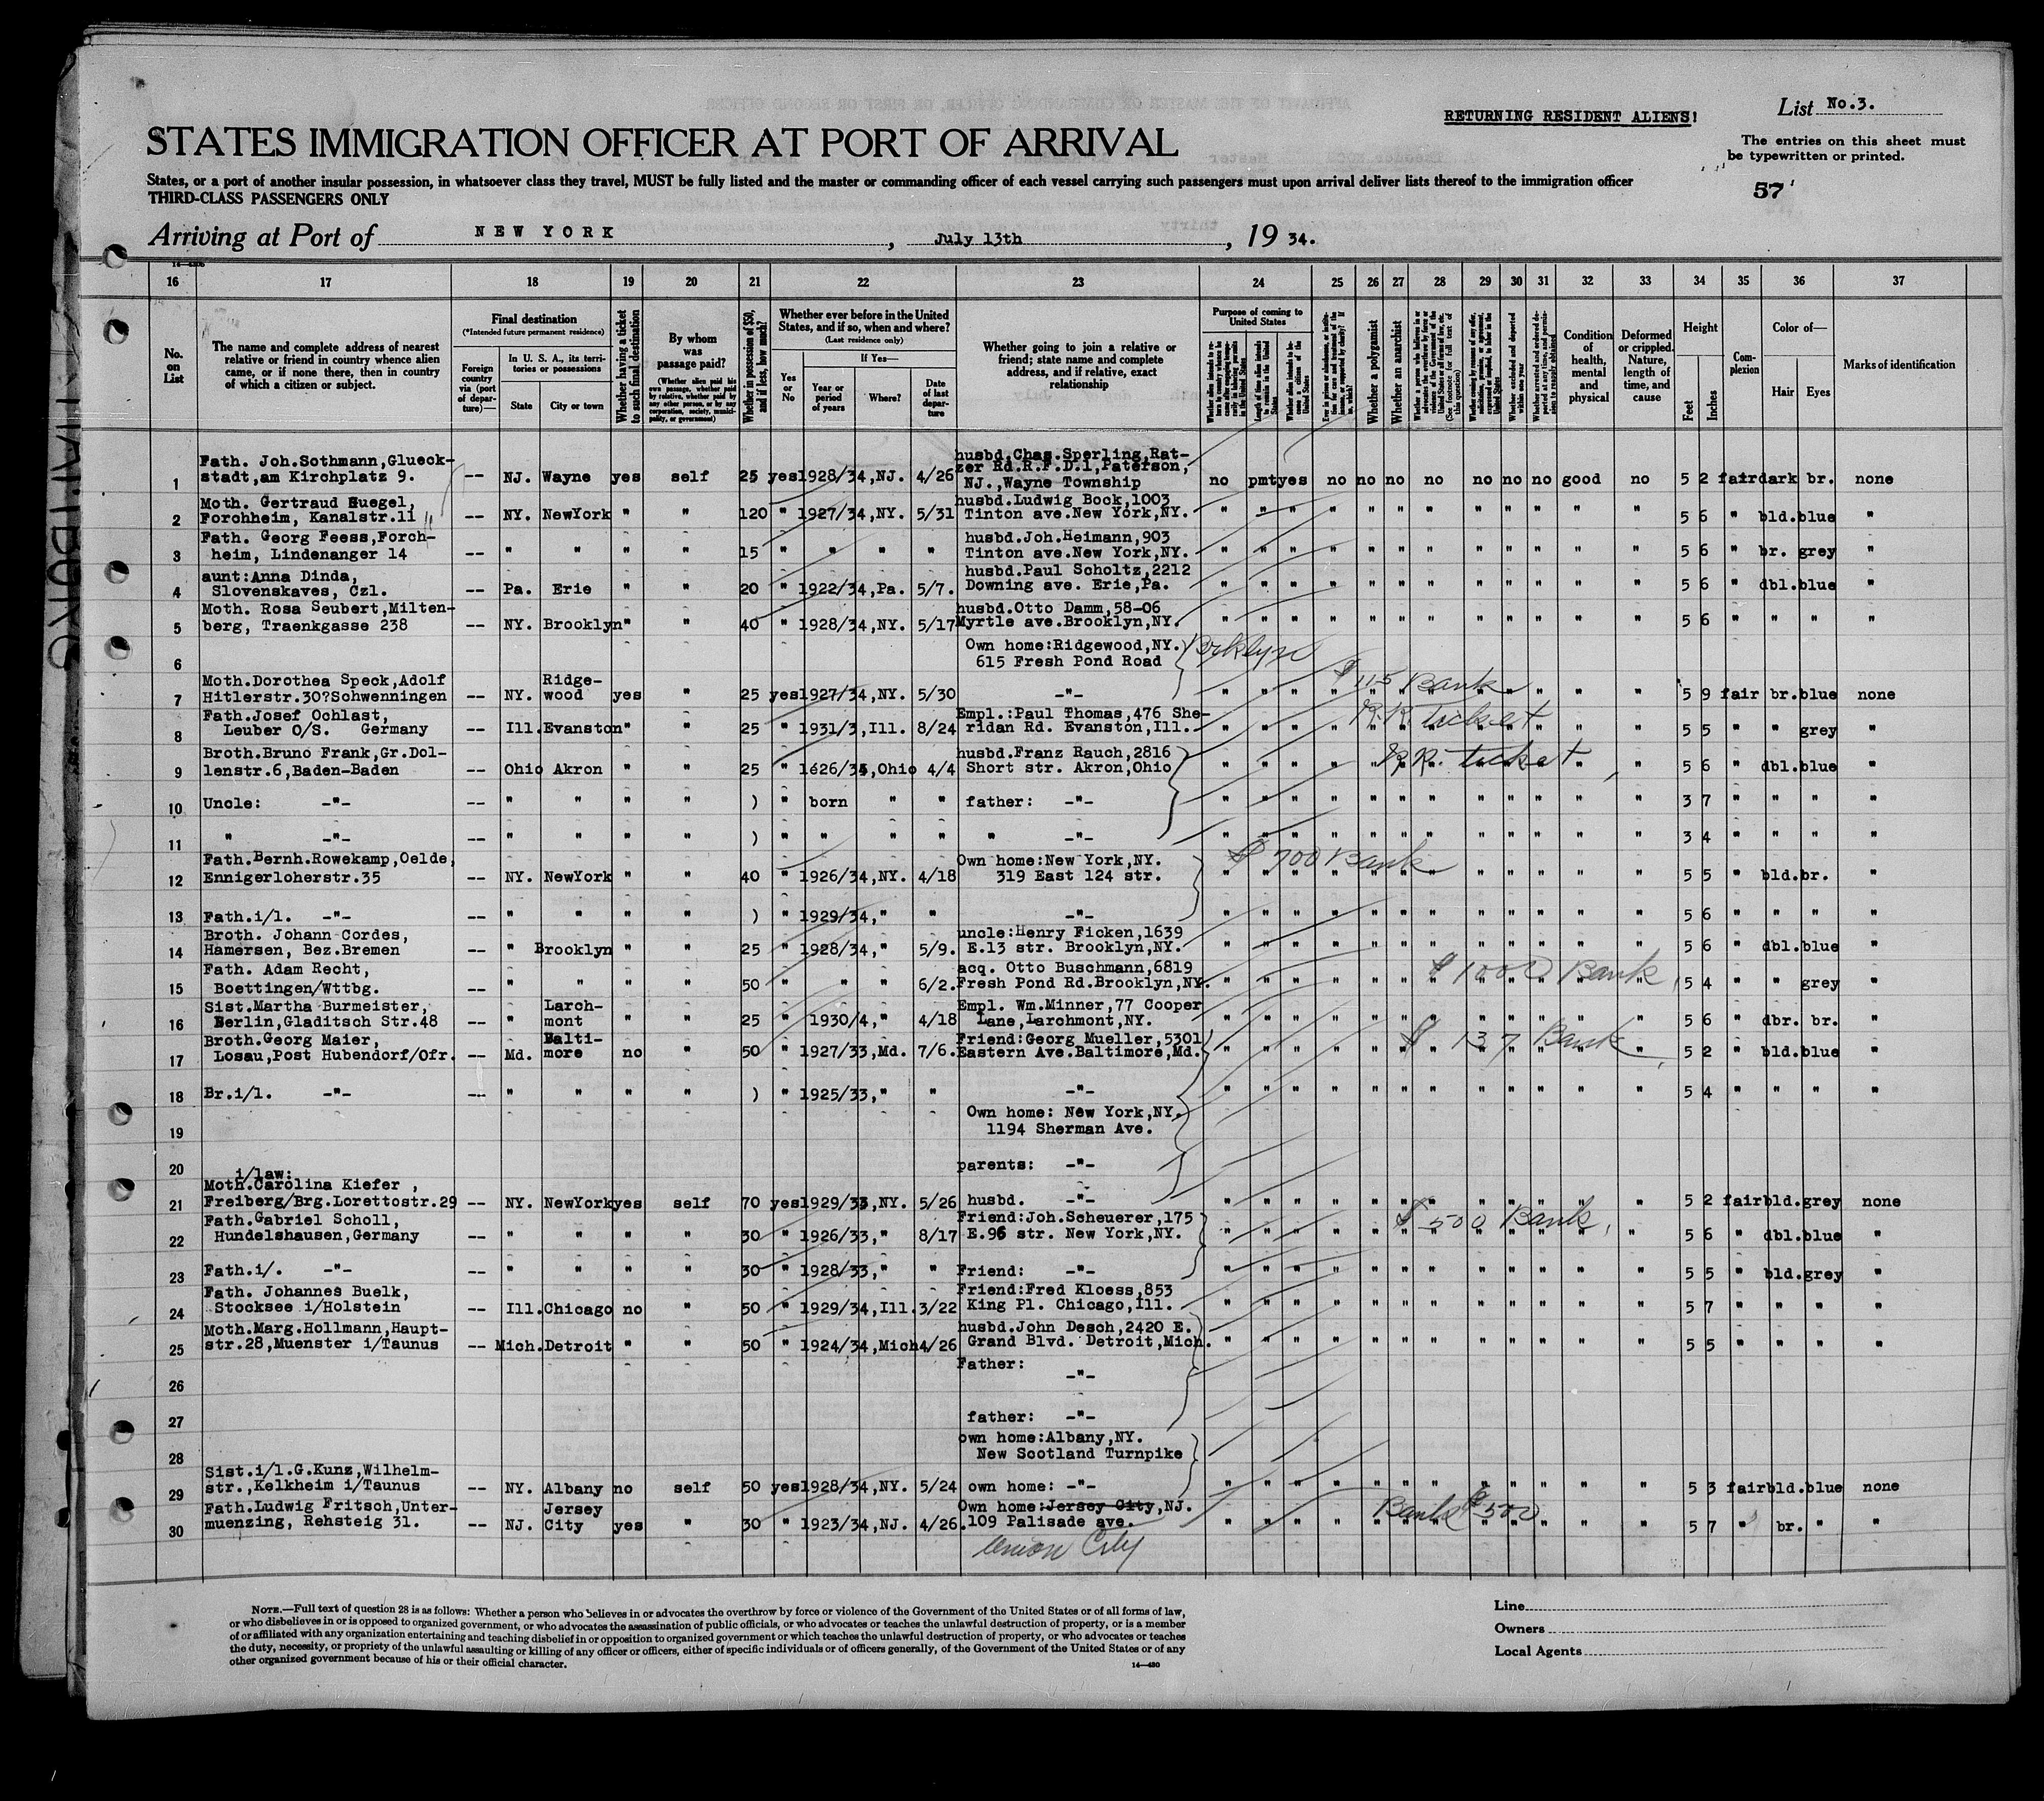 RETURNING RESIDENT ALIENS!
List No.3.
STATES IMMIGRATION OFFICER AT PORT OF ARRIVAL
The entries on this sheet must
be typewritten or printed.
States, or a port of another insular possession, in whatsoever class they travel, MUST be fully listed and the master or commanding officer of each vessel carrying such passengers must upon arrival deliver lists thereof to the immigration officer
THIRD-CLASS PASSENGERS ONLY
57
Arriving at Port of NEW YORK, July 13th, 19 34.
16 17 18 19 20 21 22 23 24 25 26 27 28 29 30 31 32 33 34 35 36 37
No. on List
The name and complete address of nearest relative or friend in country whence alien came, or if none there, then in country of which a citizen or subject.
Final destination
(*Intended future permanent residence)
Foreign country via (port of departure)—
In U. S. A., its territories or possessions
State
City or town
Whether having a ticket to such final destination
By whom was passage paid?
(Whether alien paid his own passage, whether paid by relative, whether paid by any other person, or by any corporation, society, municipality, or government)
Whether in possession of $50, and if less, how much?
Whether ever before in the United States, and if so, when and where?
(Last residence only)
Yes or No
If Yes—
Year or period of years
Where?
Date of last departure
Whether going to join a relative or friend; state name and complete address, and if relative, exact relationship
Purpose of coming to United States
Whether a polygamist
Whether an anarchist
Condition of health, mental and physical
Deformed or crippled. Nature, length of time, and cause
Height
Feet
Inches
Complexion
Color of—
Hair
Eyes
Marks of identification
1 Fath. Joh.Sothmann,Glueckstadt,am Kirchplatz 9. -- NJ. Wayne yes self 25 yes 1928/34,NJ. 4/26 husbd.Chas.Sperling,Ratzer Rd.R.F.D.1,Paterson, NJ.,Wayne Township no pmt yes no no no no no no no good no 5 2 fair dark br. none
2 Moth. Gertraud Huegel, Forchheim, Kanalstr.11 -- NY. NewYork " " 120 " 1927/34,NY. 5/31 husbd.Ludwig Bock,1003 Tinton ave.New York,NY. " " " " " " " " " " " " 5 6 " bld. blue "
3 Fath. Georg Feess,Forchheim, Lindenanger 14 -- " " " " 15 " " " " husbd.Joh.Heimann,903 Tinton ave.New York,NY. " " " " " " " " " " " " 5 6 " br. grey "
4 aunt:Anna Dinda, Slovenskaves, Czl. -- Pa. Erie " " 20 " 1922/34,Pa. 5/7. husbd.Paul Scholtz,2212 Downing ave. Erie,Pa. " " " " " " " " " " " " 5 6 " dbl. blue "
5 Moth. Rosa Seubert,Miltenberg, Traenkgasse 238 -- NY. Brooklyn " " 40 " 1928/34,NY. 5/17 husbd.Otto Damm,58-06 Myrtle ave.Brooklyn,NY. " " " " " " " " " " " " 5 6 " " " "
6 Own home:Ridgewood,NY. 615 Fresh Pond Road Brklyn
$115 Bank
7 Moth.Dorothea Speck,Adolf Hitlerstr.30?Schwenningen -- NY. Ridgewood yes " 25 yes 1927/34,NY. 5/30 -"- " " " " " " " " " " " " 5 9 fair br. blue none
R.R. Ticket
8 Fath.Josef Ochlast, Leuber O/S. Germany -- Ill. Evanston " " 25 " 1931/3,Ill. 8/24 Empl.:Paul Thomas,476 Sheridan Rd. Evanston,Ill. " " " " " " " " " " " " 5 5 " " grey "
R.R. ticket
9 Broth.Bruno Frank,Gr.Dollenstr.6,Baden-Baden -- Ohio Akron " " 25 " 1626/34,Ohio 4/4 husbd.Franz Rauch,2816 Short str. Akron,Ohio " " " " " " " " " " " " 5 6 " dbl. blue "
10 Uncle: -"- -- " " " " ) " born " " father: -"- " " " " " " " " " " " " 3 7 " " " "
11 " -"- -- " " " " ) " " " " " -"- " " " " " " " " " " " " 3 4 " " " "
$700 Bank
12 Fath.Bernh.Rowekamp,Oelde, Ennigerloherstr.35 -- NY. NewYork " " 40 " 1926/34,NY. 4/18 Own home:New York,NY. 319 East 124 str. " " " " " " " " " " " " 5 5 " bld. br. "
13 Fath.i/l. -"- -- " " " " ) " 1929/34," " -"- " " " " " " " " " " " " 5 6 " " " "
14 Broth. Johann Cordes, Hamersen, Bez.Bremen -- " Brooklyn " " 25 " 1928/34," 5/9. uncle:Henry Ficken,1639 E.13 str. Brooklyn,NY. " " " " " " " " " " " " 5 6 " dbl. blue "
$1000 Bank
15 Fath. Adam Recht, Boettingen/Wttbg. -- " " " " 50 " " " 6/2. acq. Otto Buschmann,6819 Fresh Pond Rd.Brooklyn,NY. " " " " " " " " " " " " 5 4 " " grey "
16 Sist.Martha Burmeister, Berlin,Gladitsch Str.48 -- " Larchmont " " 25 " 1930/4," 4/18 Empl. Wm.Minner,77 Cooper Lane,Larchmont,NY. " " " " " " " " " " " " 5 6 " dbr. br. "
$137 Bank
17 Broth.Georg Maier, Losau,Post Hubendorf/Ofr. -- Md. Baltimore no " 50 " 1927/33,Md. 7/6. Friend:Georg Mueller,5301 Eastern Ave.Baltimore,Md. " " " " " " " " " " " " 5 2 " bld. blue "
18 Br.i/l. -"- -- " " " " ) " 1925/33," " -"- " " " " " " " " " " " " 5 4 " " " "
19 Own home: New York,NY. 1194 Sherman Ave.
20 parents: -"-
21 i/law: Moth.Carolina Kiefer , Freiberg/Brg.Lorettostr.29 -- NY. NewYork yes self 70 yes 1929/33,NY. 5/26 husbd. -"- " " " " " " " " " " " " 5 2 fair bld. grey none
$500 Bank
22 Fath.Gabriel Scholl, Hundelshausen,Germany -- " " " " 30 " 1926/33," 8/17 Friend:Joh.Scheuerer,175 E.96 str. New York,NY. " " " " " " " " " " " " 5 6 " dbl. blue "
23 Fath.i/. -"- -- " " " " 30 " 1928/33," " Friend: -"- " " " " " " " " " " " " 5 5 " bld. grey "
24 Fath. Johannes Buelk, Stocksee i/Holstein -- Ill. Chicago no " 50 " 1929/34,Ill. 3/22 Friend:Fred Kloess,853 King Pl. Chicago,Ill. " " " " " " " " " " " " 5 7 " " " "
25 Moth.Marg.Hollmann,Hauptstr.28,Muenster i/Taunus -- Mich. Detroit " " 50 " 1924/34,Mich 4/26 husbd.John Desch,2420 E. Grand Blvd. Detroit,Mich. " " " " " " " " " " " " 5 5 " " " "
26 Father: -"-
27 father: -"-
28 own home:Albany,NY. New Scotland Turnpike
29 Sist.i/l.G.Kunz,Wilhelmstr.,Kelkheim i/Taunus -- NY. Albany no self 50 yes 1928/34,NY. 5/24 own home: -"- " " " " " " " " " " " " 5 3 fair bld. blue none
Bank $500
30 Fath.Ludwig Fritsch,Untermuenzing, Rehsteig 31. -- NJ. Jersey City yes " 30 " 1923/34,NJ. 4/26. Own home:Jersey City,NJ. 109 Palisade ave. " " " " " " " " " " " " 5 7 " br. " "
Union City
NOTE.—Full text of question 28 is as follows: Whether a person who believes in or advocates the overthrow by force or violence of the Government of the United States or of all forms of law,
or who disbelieves in or is opposed to organized government, or who advocates the assassination of public officials, or who advocates or teaches the unlawful destruction of property, or is a member
of or affiliated with any organization entertaining and teaching disbelief in or opposition to organized government or which teaches the unlawful destruction of property, or who advocates or teaches
the duty, necessity, or propriety of the unlawful assaulting or killing of any officer or officers, either of specific individuals or of officers generally, of the Government of the United States or of any
other organized government because of his or their official character.
14—430
Line
Owners
Local Agents